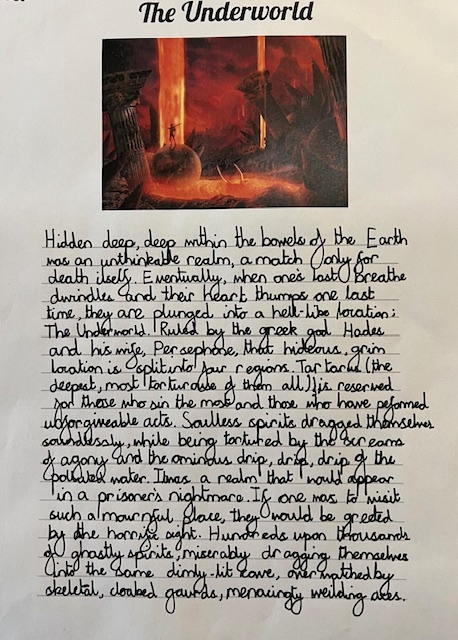 The Underworld
Hidden deep, deep within the bowels of the Earth
was an unthinkable realm, a match only for
death itself. Eventually, when one's last breathe
dwindles and their heart thumps one last
time, they are plunged into a hell-like location:
The Underworld. Ruled by the greek god Hades
and his wife, Persephone, that hideous, grim
location is split into four regions. Tartarus (the
deepest, most torturouse of them all) is reserved
for those who sin the most and those who have peformed
unforgiveable acts. Soulless spirits dragged themselves
soundlessly, while being tortured by the screams
of agony and the ominous drip, drip, drip of the
polluted water. It was a realm that would appear
in a prisoner's nightmare. If one was to visit
such a mournful place, they would be greeted
by the horrific sight. Hundreds upon thousands
of ghastly spirits, miserably dragging themselves
into the same dimly-lit cave, over watched by
skeletal, cloaked gaurds, menacingly weilding axes.